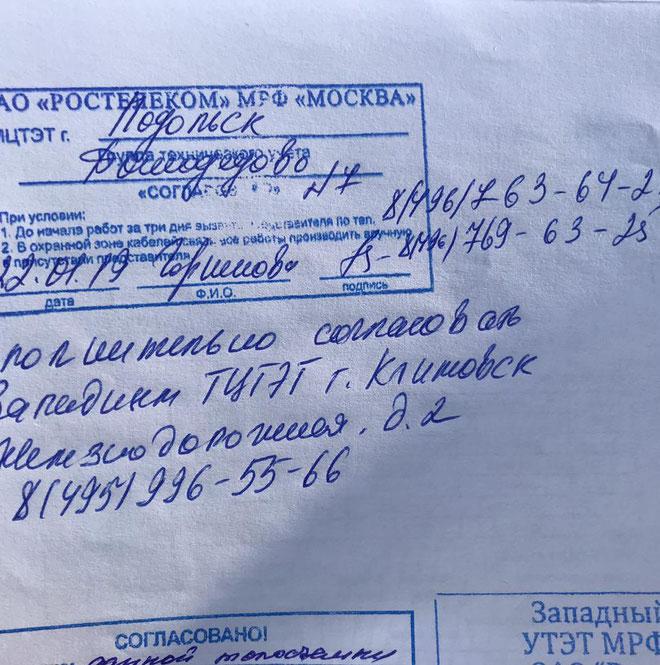 АО «РОСТЕЛЕКОМ» МРФ «МОСКВА»
ЦТЭТ г. Подольск
Группа технического учета
Домодедово
«СОГЛАСОВАНО» N7
8(496)763-64-2
При условии:
1. До начала работ за три дня вызвать представителя по тел. 8(496)769-63-25
2. В охранной зоне кабелей связи все работы производить вручную
в присутствии представителя
22.01.19
дата Ф.И.О. подпись
полнительно согласовать
Западный ТЦТЭТ г. Климовск
Железнодорожная, д.2
8(495)996-55-66
СОГЛАСОВАНО!
Западный
УТЭТ МРФ